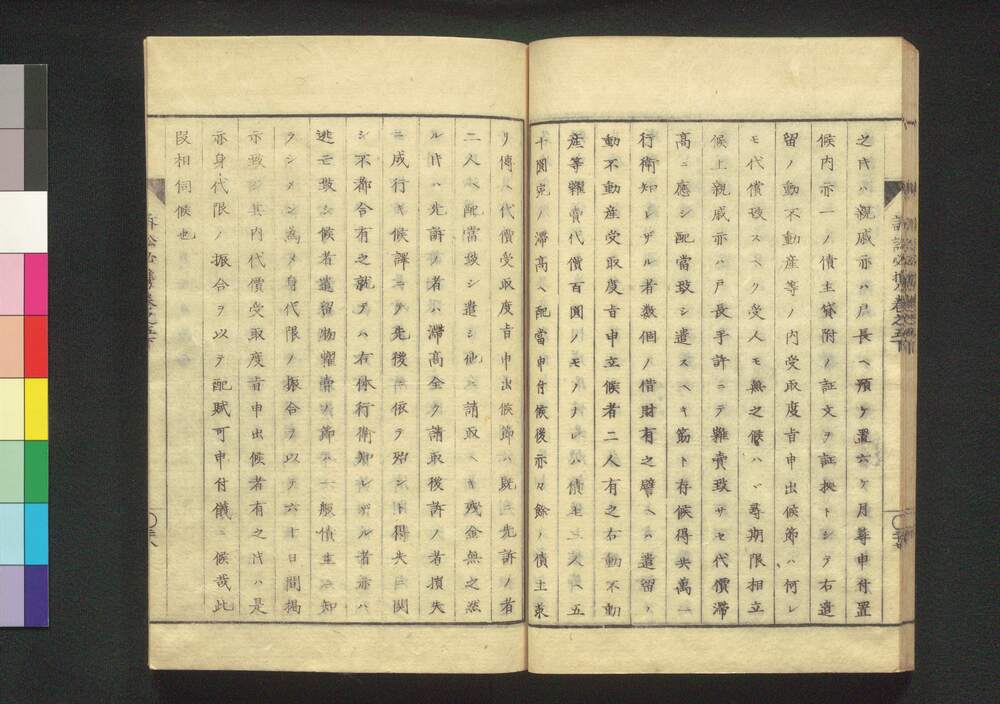 之トキハ親戚亦ハ戸長ヘ預ケ置六ケ月尋申付置
候内亦一ノ債主貸附ノ証文ヲ証拠トシテ右遺
留ノ動不動産等ノ内受取度旨申出候節ハ何レ
モ代償致スヘク受人モ無之候ハヽ尋期限相立
候上親戚亦ハ戸長手許ニテ糶賣致サセ代價滞
高ニ應シ配當致シ遣スヘキ筋ト存候得失萬一
行衛知レザル者数個ノ借財有之譬ヘハ遺留ノ
動不動産受取度旨申立候者二人有之右動不動
産等糶賣代價百圓ノモノナレハ債主二人ヘ五
十圓宛ノ滞高ヘ配當申付候後亦々餘ノ債主承
リ傳ヘ代價受取度旨申出候節ハ既ニ先訴ノ者
二人ヘ配當致シ遣シ他ニ請取ヘキ残金無之然
ルトキハ先訴ノ者ハ滞高全ク請取後訴ノ者損失
ニ成行キ候譯ニテ先後ニ依テ殆ント得失ニ関
シ不都合有之就テハ右体行衛知レザル者亦ハ
逃亡致シ候者遺留物糶賣ノ節ハ一般債主ニ知
ラシメン為メ身代限ノ振合ヲ以テ六十日間掲
示致シ其内代價受取度旨申出候者有之トキハ是
亦身代限ノ振合ヲ以テ配賦可申付儀ニ候哉此
段相伺候也